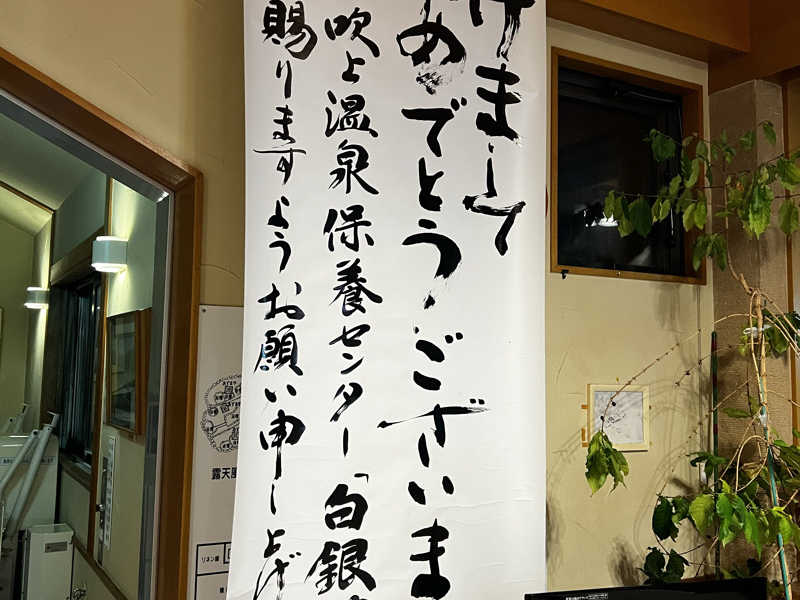 けまして
めでとうございま
吹上温泉保養センター「白銀
賜りますようお願い申し上げ
露天風
リネン庫